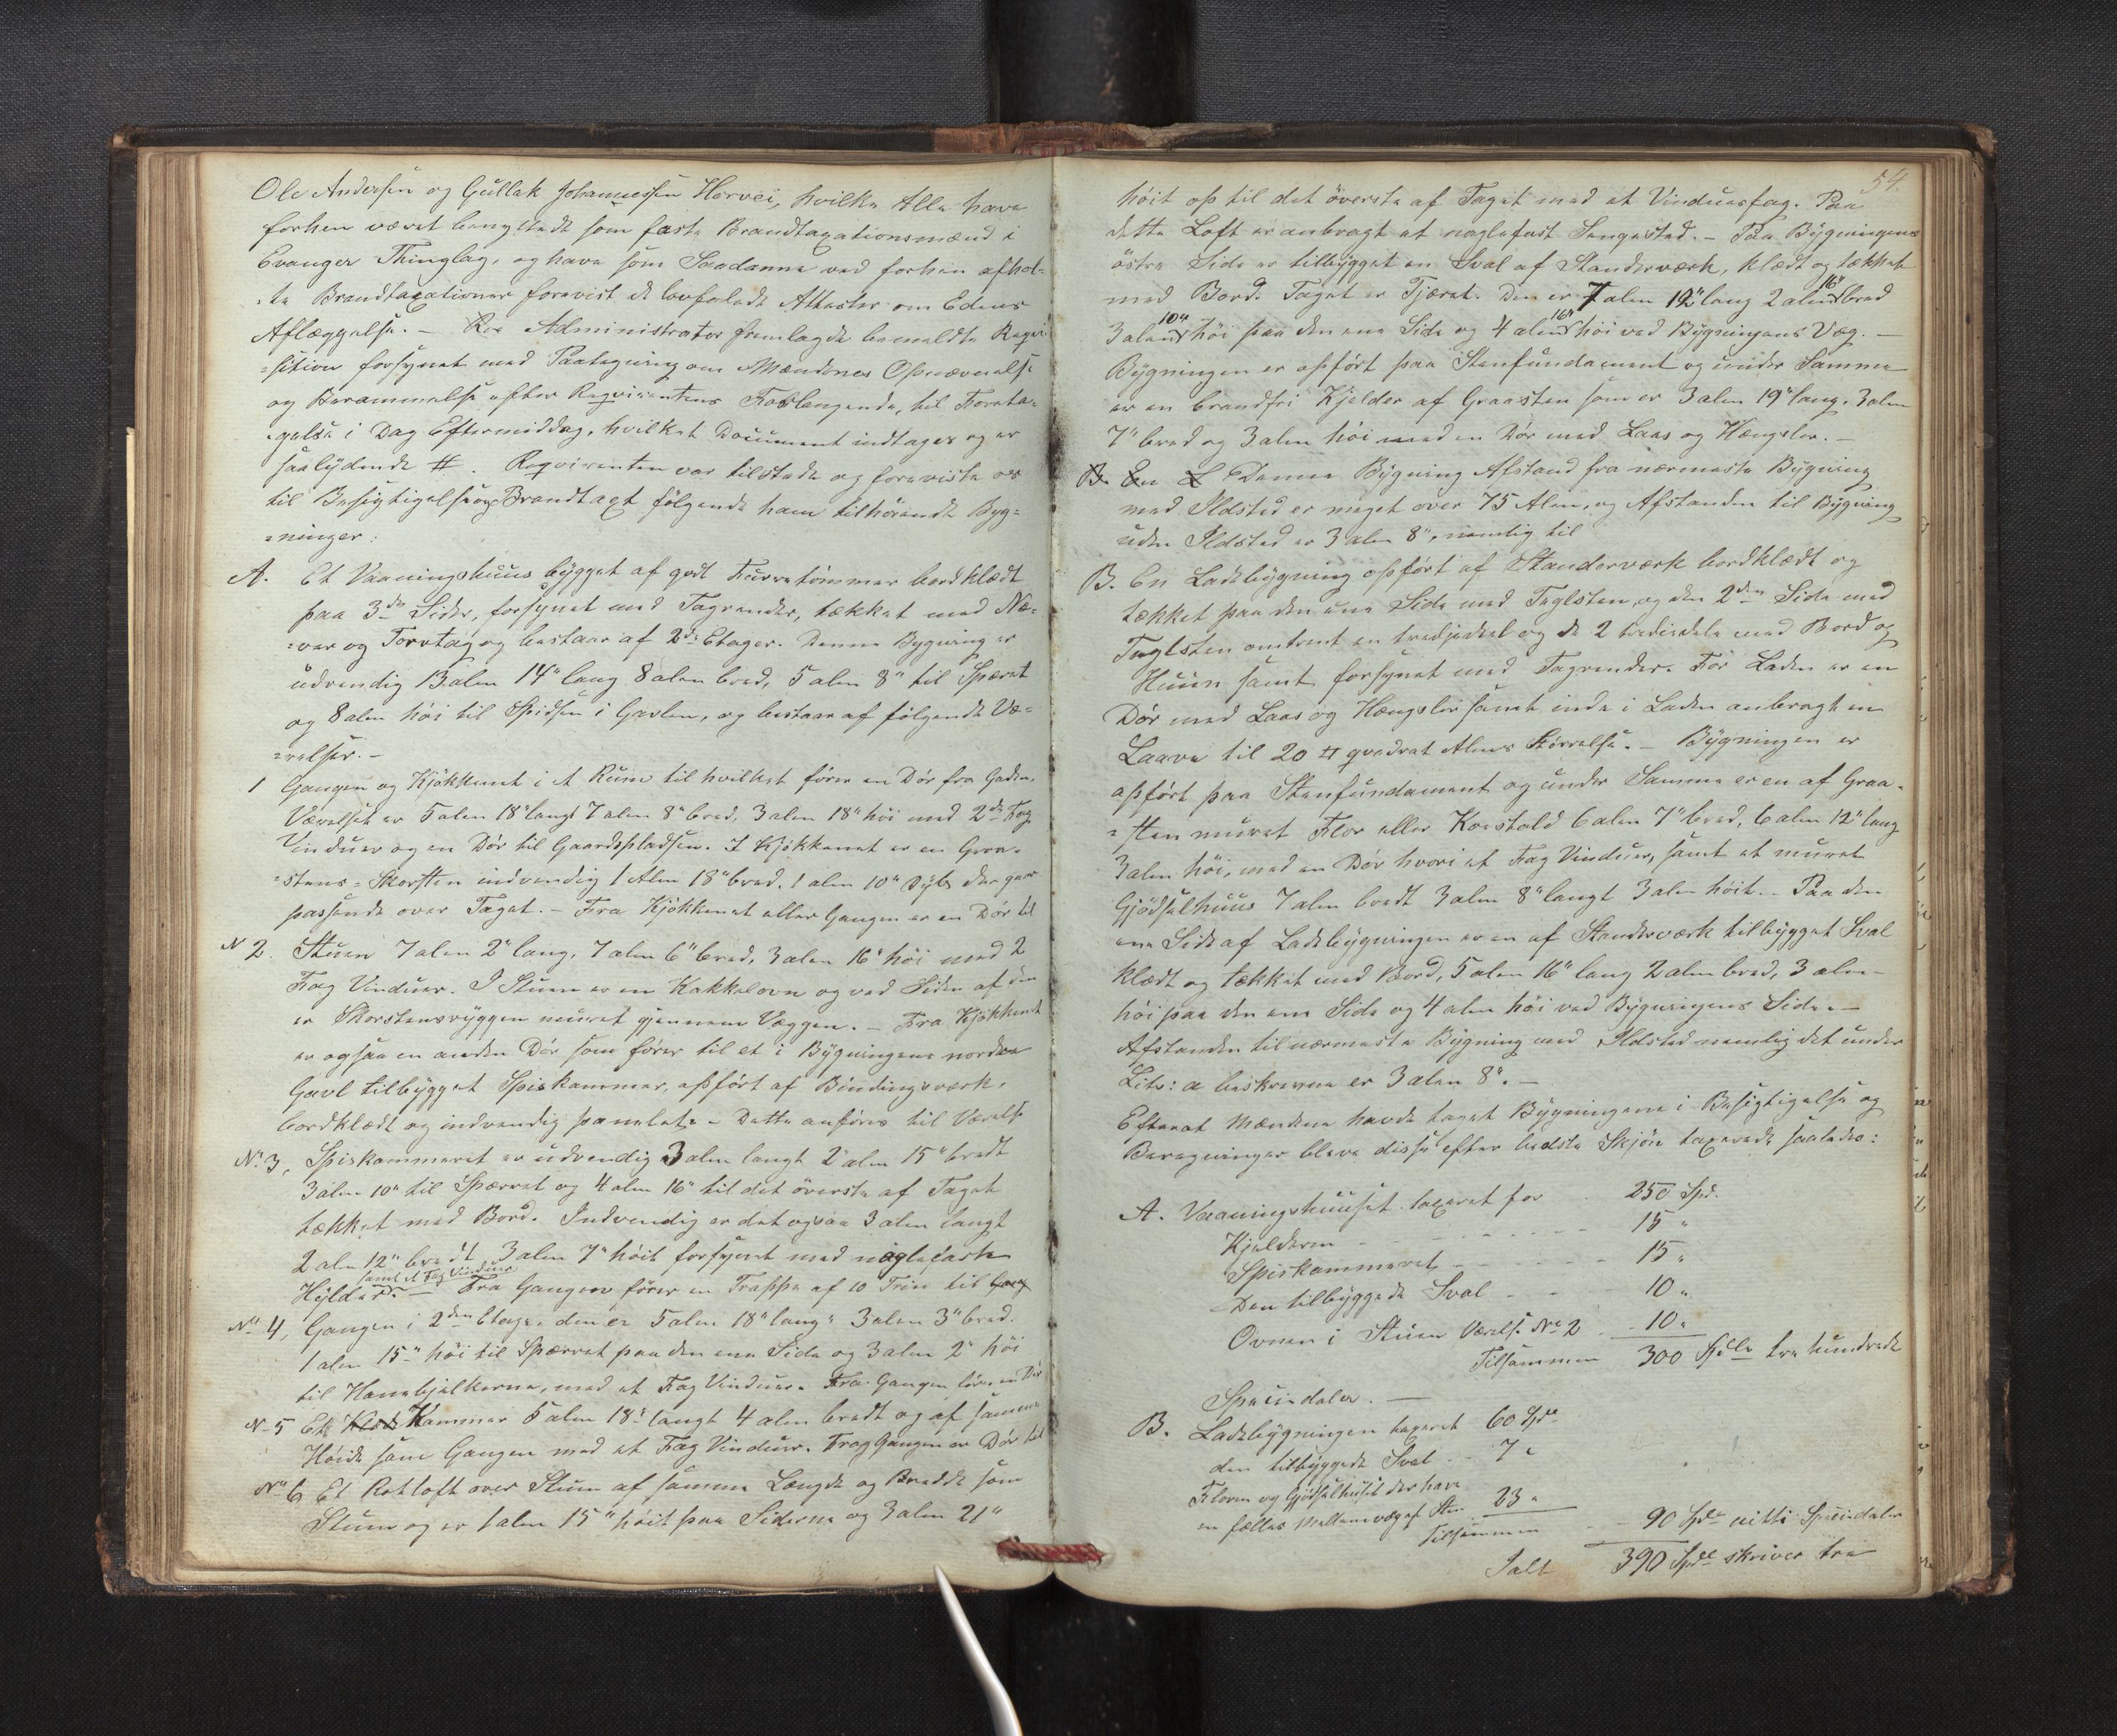 Ole Andersen og Gullak Johannessen Horvei, hvilke Alle have
forhen været benyttede som faste Brandtaxationsmænd i
Evanger Thinglag, og have som Saadanne ved forhen afhol-
-te Brandtaxationer forevist de lovbefalede Attester om Edens
Aflæggelse. – Administrator fremlagde bemeldte Reqvi-
=sition forsynet med Paategning om Mændenes Opnævnelse
og Berammelse efter Reqvirentens Forlangende, til Foreta-
-gelse i Dag Eftermiddag, hvilket Document indtages og er
saalydende #. Reqvirenten var tilstede og foreviste os
til Besigtigelse og Brandtaxt følgende ham tilhørende Byg=
=ninger:
A. Et Vaaningshuus bygget af godt Furretømmer bordklædt
paa 3de Sider, forsynet med Tagrender, tækket med Næ-
=ver og Torvtag og bestaar af 2de Etager. Denne Bygning er
udvendig 13 alen 14" lang 8 alen bred, 5 alen 8" til Spæret
og 8 alen høi til Spidsen i Gavlen, og bestaar af følgende Væ-
=relser. –
1 Gangen og Kjøkkenet i et Rum til hvilket fører en Dør fra Gaden.
Værelset er 5 alen 18" langt 7 alen 8" bred, 3 alen 18" høi med 2de Fag
Vinduer og en Dør til Gaardspladsen. I Kjøkkenet er en Graa-
=stens=Skorsten indvendig 1 Alen 18" bred. 1 alen 10" dyb der gaar
passende over Taget. – Fra Kjøkkenet eller Gangen er en Dør til
N 2. Stuen 7 alen 2" lang, 7 alen 6" bred, 3 alen 16" høi med 2
Fag Vinduer. I Stuen er en Kakkelovn og ved Siden af den
er Skorstensryggen muret gjennem Væggen. – Fra Kjøkkenet
er ogsaa en anden Dør som fører til et i Bygningens nordre
Gavl tilbygget Spiskammer, opført af Bindingsværk,
bordklædt og indvendig panelet. – Dette anføres til Værelse
No 3, Spiskammeret er udvendig 3 alen langt 2 alen 15" bredt
3 alen 10" til Spærret og 4 alen 16" til det øverste af Taget
tækket med Bord. Indvendig er det ogsaa 3 alen langt
2 alen 12" bredt 3 alen 7" høit forsynet med naglefaste
Hylder samt et Fag Vinduer. – Fra Gangen fører en Trappe af 10 Trin til Gang
No 4, Gangen i 2den Etage, den er 5 alen 18" lang 3 alen 3" bred.
1 alen 15" høi til Spærret paa den ene Side og 3 alen 2" høi
til Hanebjelkerne, med et Fag Vinduer. Fra Gangen fører en Dør
No 5 Et Kammer 5 alen 18" langt 4 alen bredt og af samme
Høide som Gangen med et Fag Vinduer. Fra Gangen er Dør til
No 6 Et Rotloft over Stuen af samme Længde og Bredde som
Stuen og er 1 alen 15" høit paa Siderne og 3 alen 21"
54.
høit op til det øverste af Taget med et Vinduesfag. Paa
dette Loft er anbragt et naglefast Sengested. – Paa Bygningens
østre Side er tilbygget en Sval af Standerværk, klædt og tækket
med Bord. Taget er Tjæret. Den er 7 alen 12" lang 2 alen 16" bred
3 alen 10" høi paa den ene Side og 4 alen 16" høi ved Bygningens Væg. –
Bygningen er opført paa Stenfundament og under Samme
er en brandfri Kjelder af Graasten som er 3 alen 19" lang. 3 alen
7" bred og 3 alen høi med en Dør med Laas og Hængsler. –
B. En L Denne Bygning Afstand fra nærmeste Bygning
med Ildsted er meget over 75 Alen, og Afstanden til Bygning
uden Ildsted er 3 alen 8", nemlig til
B. En Ladebygning opført af Standerværk bordklædt og
tækket paa den ene Side med Teglsten, og den 2den Side med
Teglsten omtrent en tredjedeel og de 2 trediedele med Bord og
Huun samt forsynet med Tagrender. For Laden er en
Dør med Laas og Hængsler samt inde i Laden anbragt en
Laave til 20 qvadrat Alens Størrelse. – Bygningen er
opført paa Stenfundament og under Samme er en af Graa-
=sten muret Flor eller Kostald 6 alen 7" bred, 6 alen 12" lang
3 alen høi, med en Dør hvori et Fag Vinduer, samt et muret
Gjødselhuus 7 alen bredt 3 alen 8" langt 3 alen høit. – Paa den
ene Side af Ladebygningen er en af Standerværk tilbygget Sval
klædt og tækket med Bord, 5 alen 16" lang 2 alen bred, 3 alen
høi paa den ene Side og 4 alen høi ved Bygningens Side. –
Afstanden til nærmeste Bygning med Ildsted nemlig det under
Litr: a beskrevne er 3 alen 8". –
Efterat Mændene havde taget Bygningerne i Besigtigelse og
Beregninger bleve disse efter bedste Skjøn taxerede saaledes:
A. Vaaningshuuset taxeret for 250 Spd.
Kjelderen 15 "
Spiskammeret 15 "
Den tilbyggede Sval 10 "
Ovnen i Stuen Værelse No 2 10 "
Tilsammen 300 Spdlr tre hundrede
Speciedaler. –
B. Ladebygningen taxeret 60 Spd
den tilbyggede Sval 7 "
Floren og Gjødselhuset der have
en fælles Mellemvæg af Sten 23 "
Tilsammen 90 Spd nitti Speciedaler
Ialt 390 Spd skriver tre